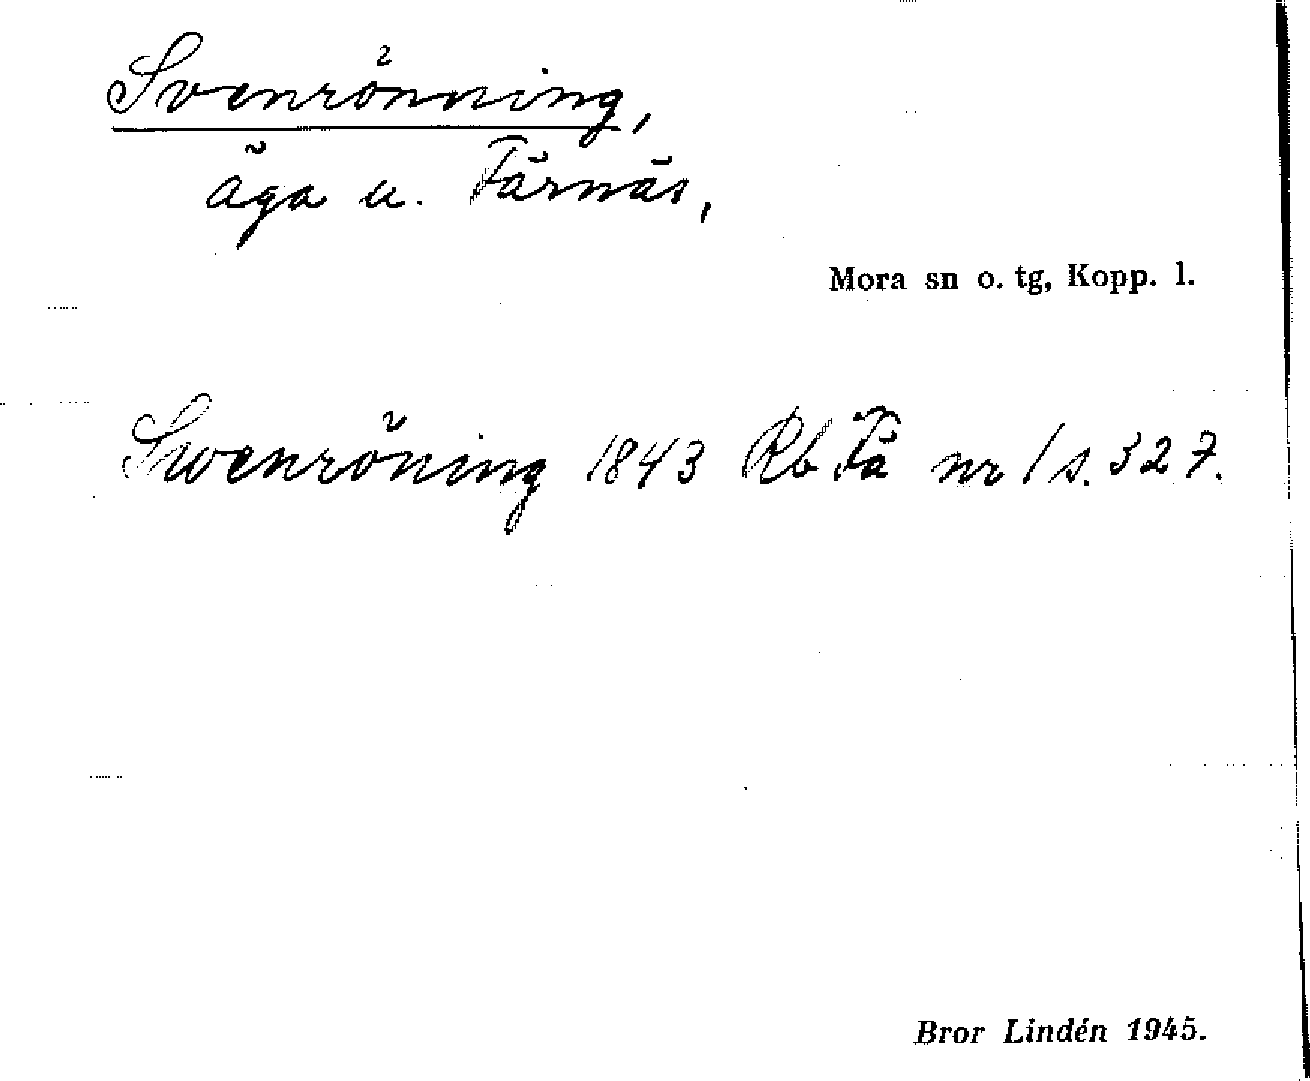 Svenrönning,
äga u. Färnäs,
Mora sn o. tg, Kopp. l.
Swenröning 1843 Rb Fä nr 1 s. 327.
Bror Lindén 1945.